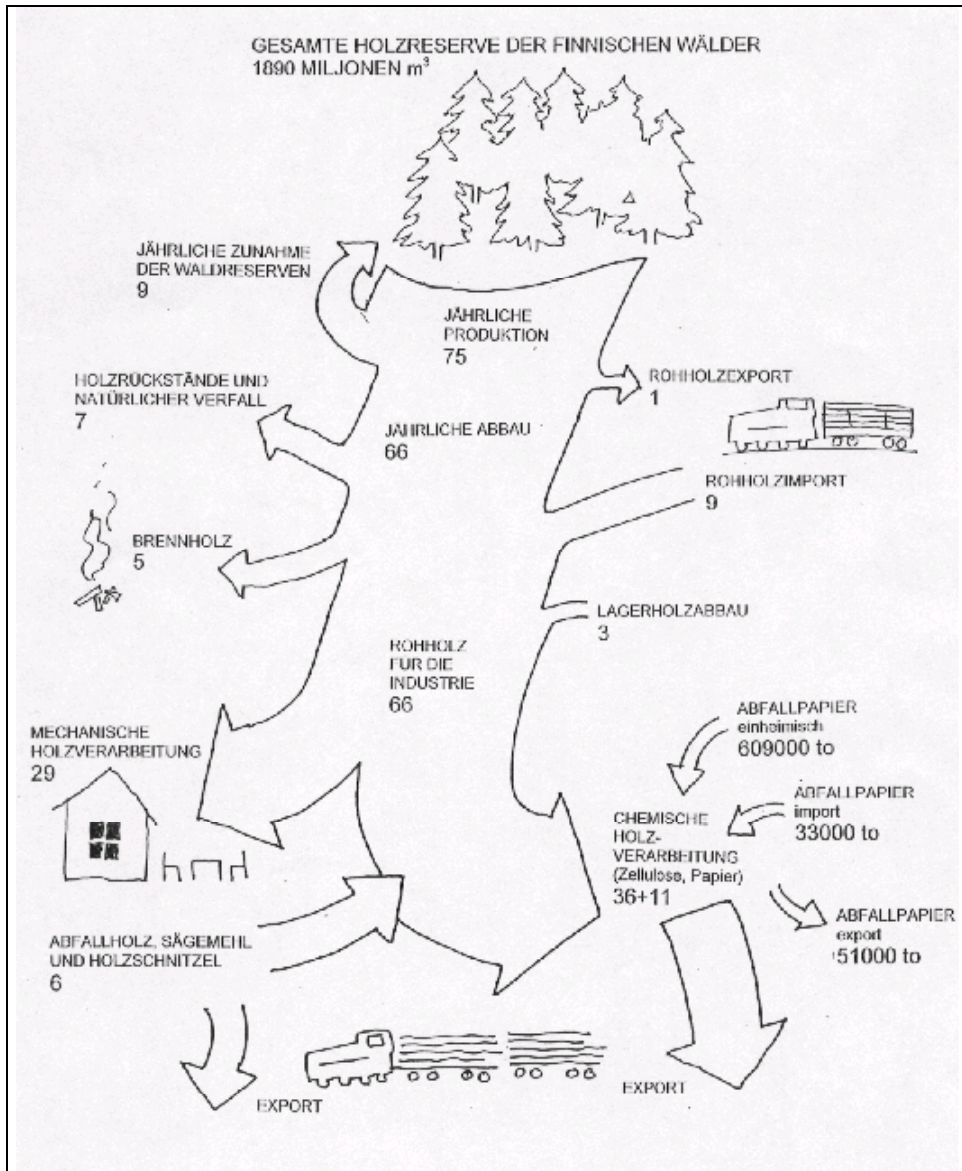 GESAMTE HOLZRESERVE DER FINNISCHEN WÄLDER
1890 MILJONEN m³
JÄHRLICHE ZUNAHME
DER WALDRESERVEN
9
JÄHRLICHE
PRODUKTION
75
HOLZRÜCKSTÄNDE UND
NATÜRLICHER VERFALL
7
ROHHOLZEXPORT
1
JÄHRLICHE ABBAU
66
ROHHOLZIMPORT
9
BRENNHOLZ
5
LAGERHOLZABBAU
3
ROHHOLZ
FÜR DIE
INDUSTRIE
66
MECHANISCHE
HOLZVERARBEITUNG
29
ABFALLPAPIER
einheimisch
609000 to
ABFALLPAPIER
import
33000 to
CHEMISCHE
HOLZ-
VERARBEITUNG
(Zellulose, Papier)
36+11
ABFALLPAPIER
export
51000 to
ABFALLHOLZ, SÄGEMEHL
UND HOLZSCHNITZEL
6
EXPORT
EXPORT